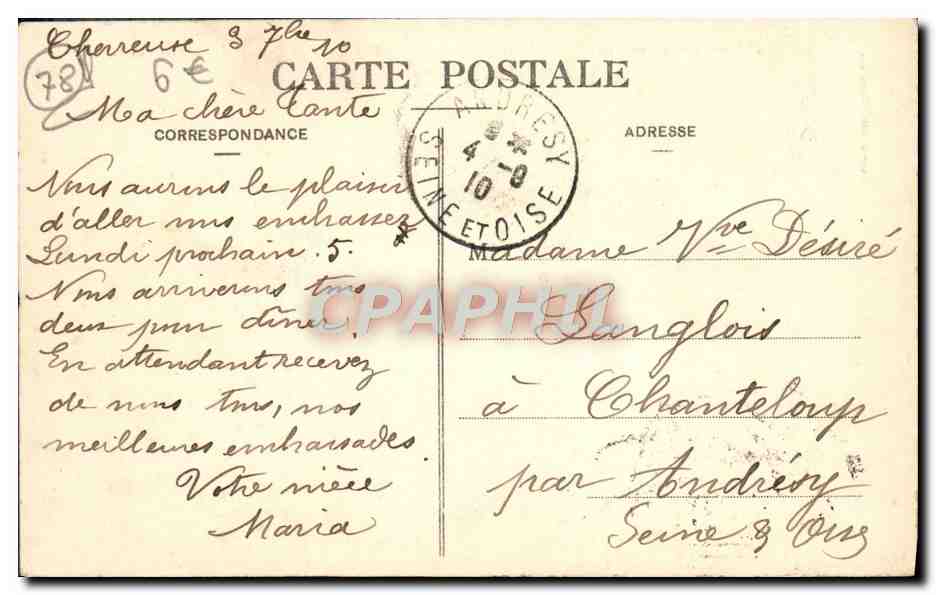 Chevreuse 3 7bre 10
78
6 €
CARTE POSTALE
Ma chère tante
CORRESPONDANCE
Nous aurons le plaisir
d'aller vous embrasser
Lundi prochain. 5.
Nous arriverons tous
deux pour dîner.
En attendant recevez
de nous tous, nos
meilleures embrassades.
Votre nièce
Maria
ANDRESY
4 -9
10
SEINE ET OISE
ADRESSE
Madame Vve Désiré
Langlois
à Chanteloup
par Andrésy
Seine & Oise
CPAPHIL